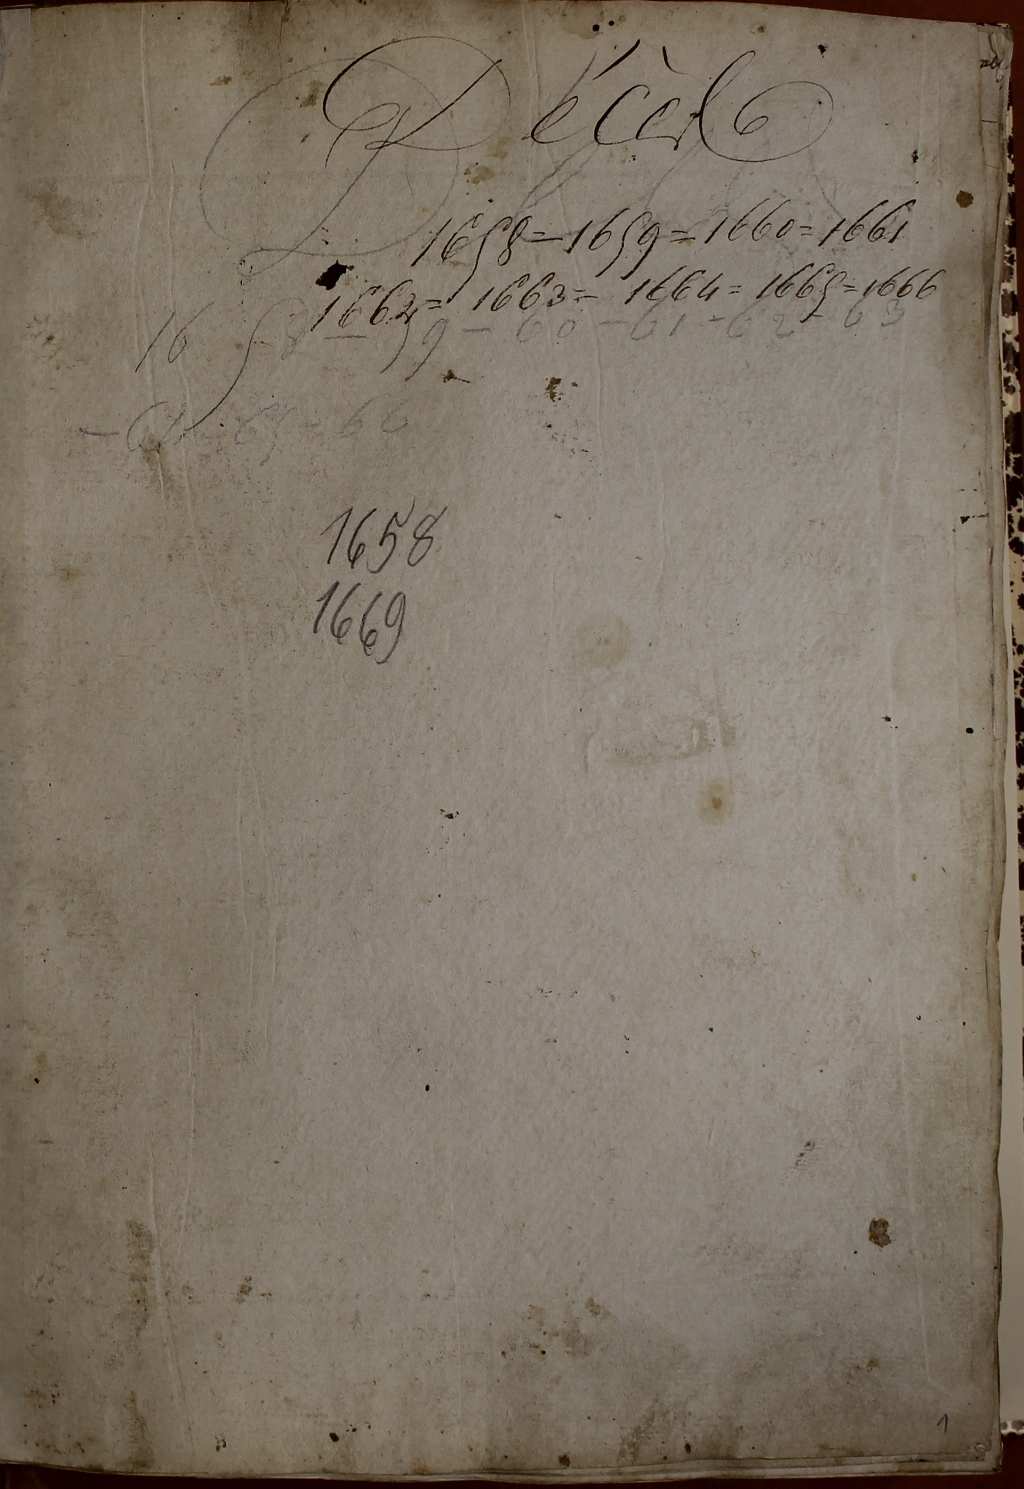 Décès
1658 = 1659 = 1660 = 1661
1662 = 1663 = 1664 = 1665 = 1666
1658 - 59 - 60 - 61 - 62 - 63
- 64 - 65 - 66
1658
1669
1